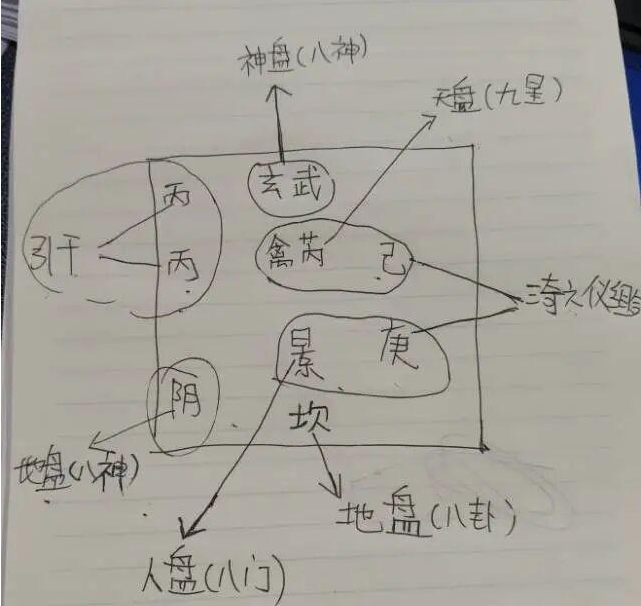 神盘(八神)
天盘(九星)
玄武
丙
引干
丙
禽芮 己
三奇六仪组合
景 庚
阴
坎
地盘(八神)
地盘(八卦)
人盘(八门)